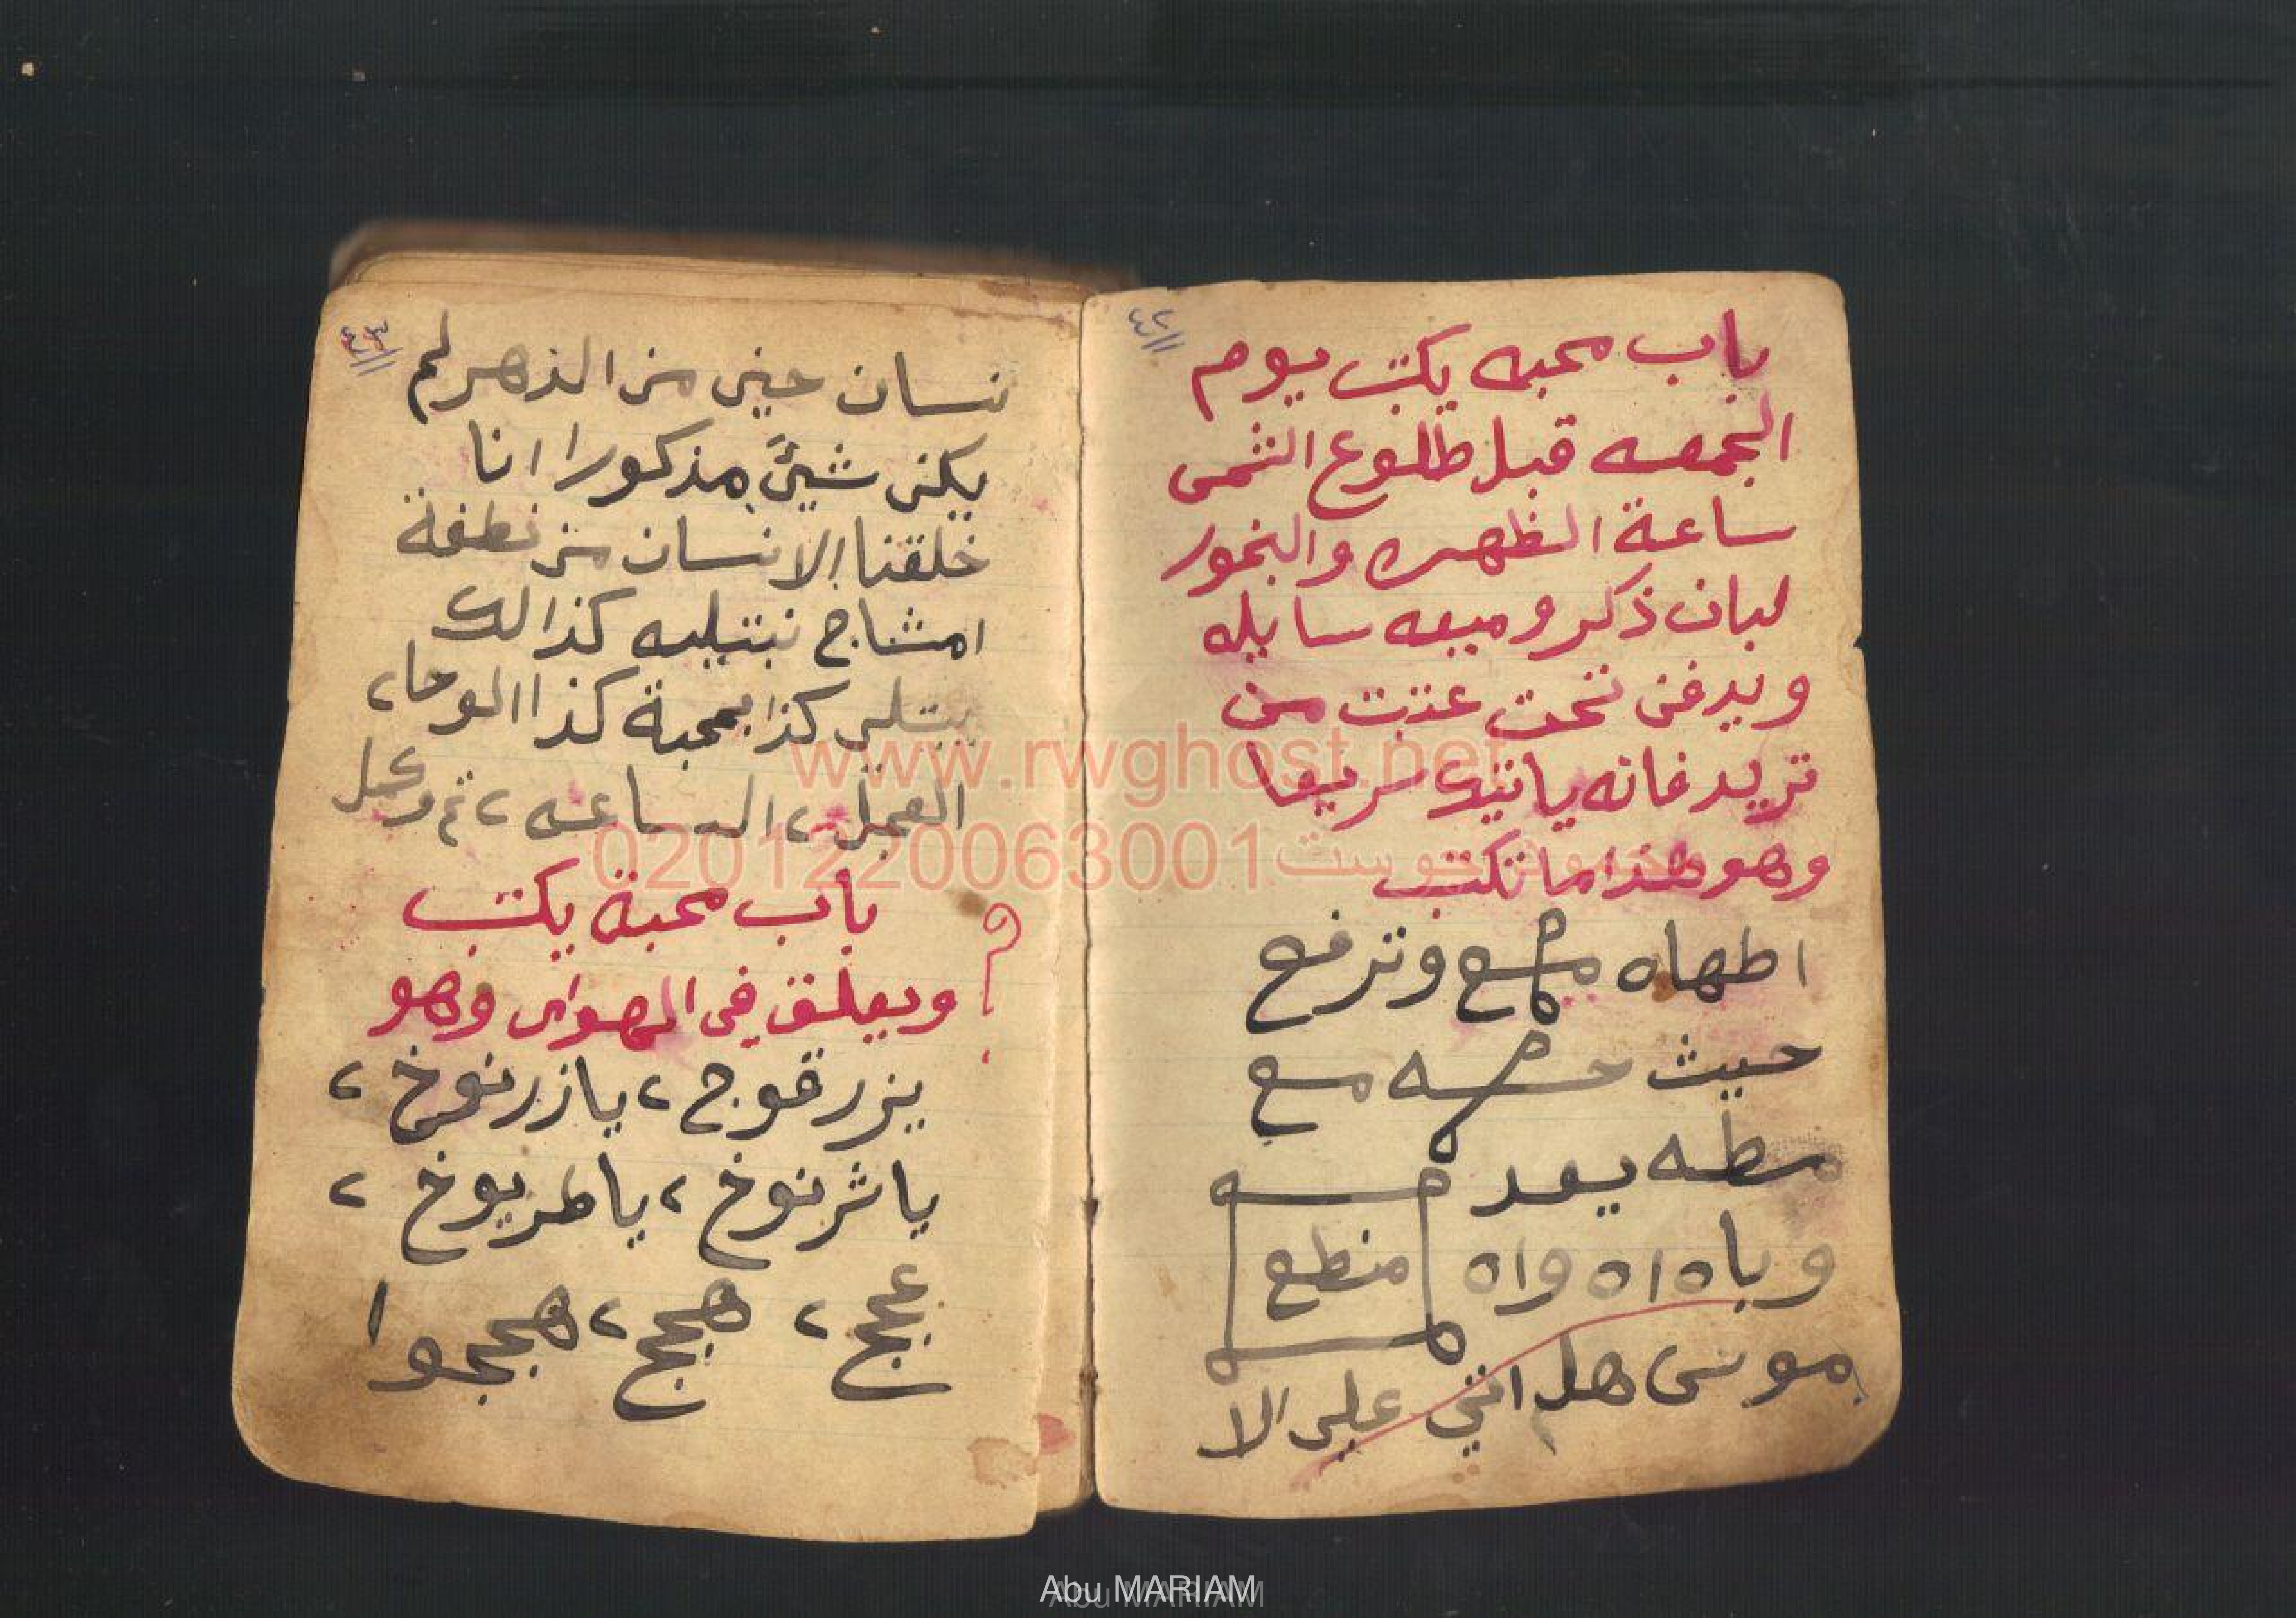 ٤٢
باب محبه يكتب يوم
الجمعه قبل طلوع الشمس
ساعة الظهره والبخور
لبان ذكر وميعه سايله
ويدفن تحت عتبت من
تريد فانه ياتيك سريعا
وهو هذا ما تكتب
اطهاه وترفع
حيث مع
مطه يعد
وباه اه واه منطع
موسى هل اتى على الا
٤٣
نسان حين من الذهر لم
يكن شيئ مذكورا انا
خلقنا الانسان من نطفة
امشاج نبتليه كذالك
يبتلى كذا بمحبة كذا الوحا٢
العجل٢ الساعه٢ تم وكمل
باب محبة يكتب
ويعلق في الهواى وهو
يزرقوج٢ يازرنوخ٢
ياشرنوخ٢ ياطريوخ٢
عجج٢ هجج٢ هججوا
www.rwghost.net
0201220063001
Abu MARIAM